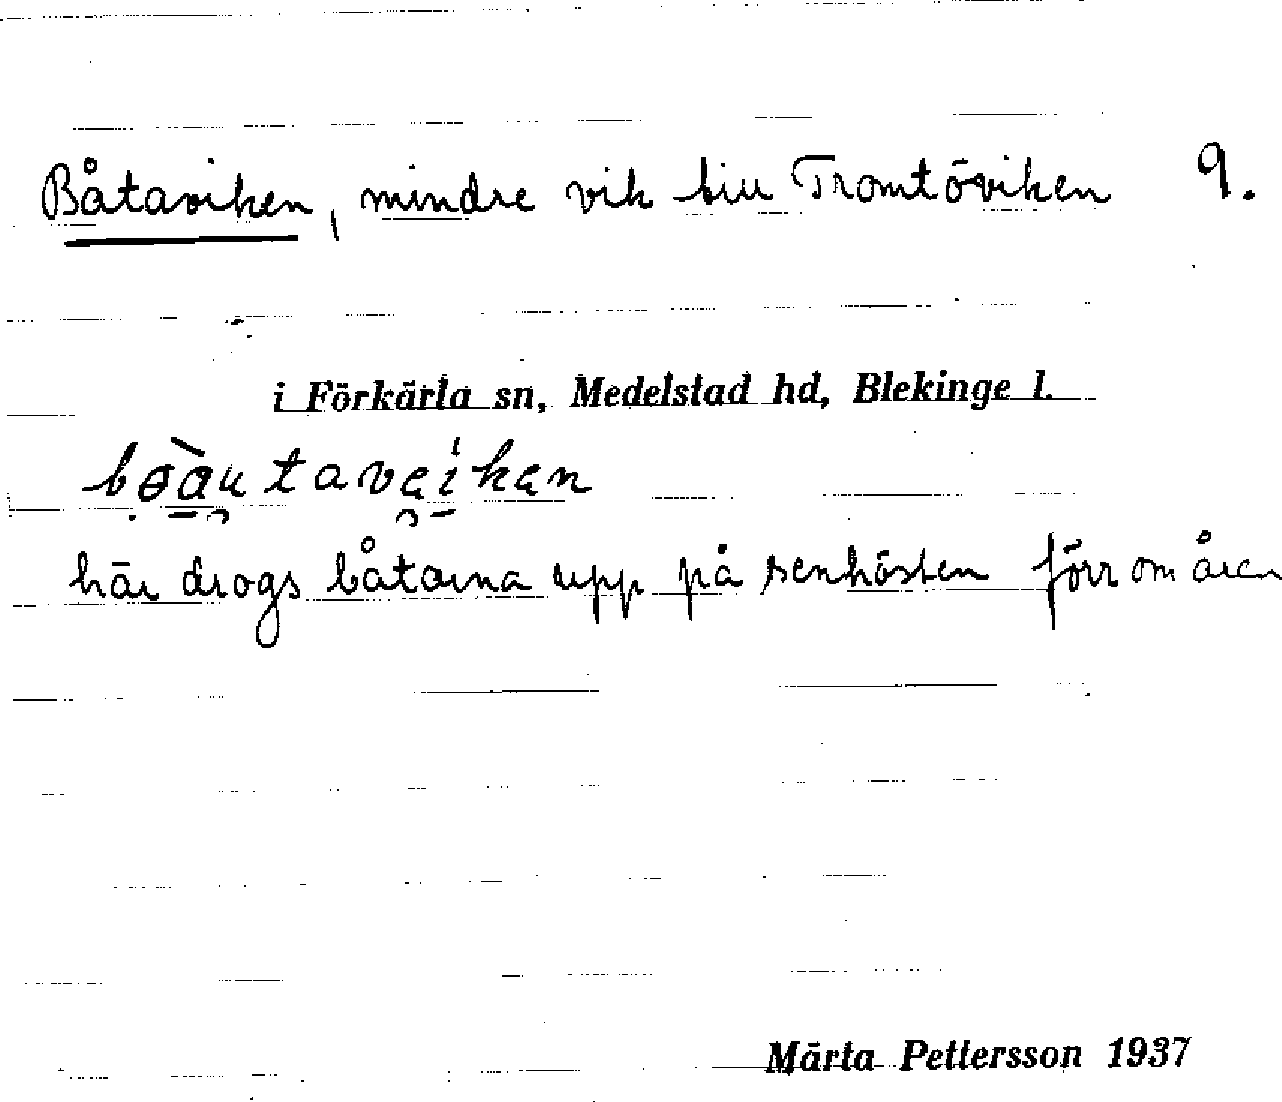 Båtaviken, mindre vik till Tromtöviken 9.
i Förkärla sn, Medelstad hd, Blekinge l.
här drogs båtarna upp på senhösten förr om åren
Märta Pettersson 1937